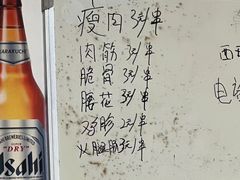 瘦肉 3元/串
肉筋 3元/串
脆骨 3元/串
腰花 3元/串
鸡胗 2元/串
火腿肠 3元/串
电话
KARAKUCHI
"DRY"
Asahi